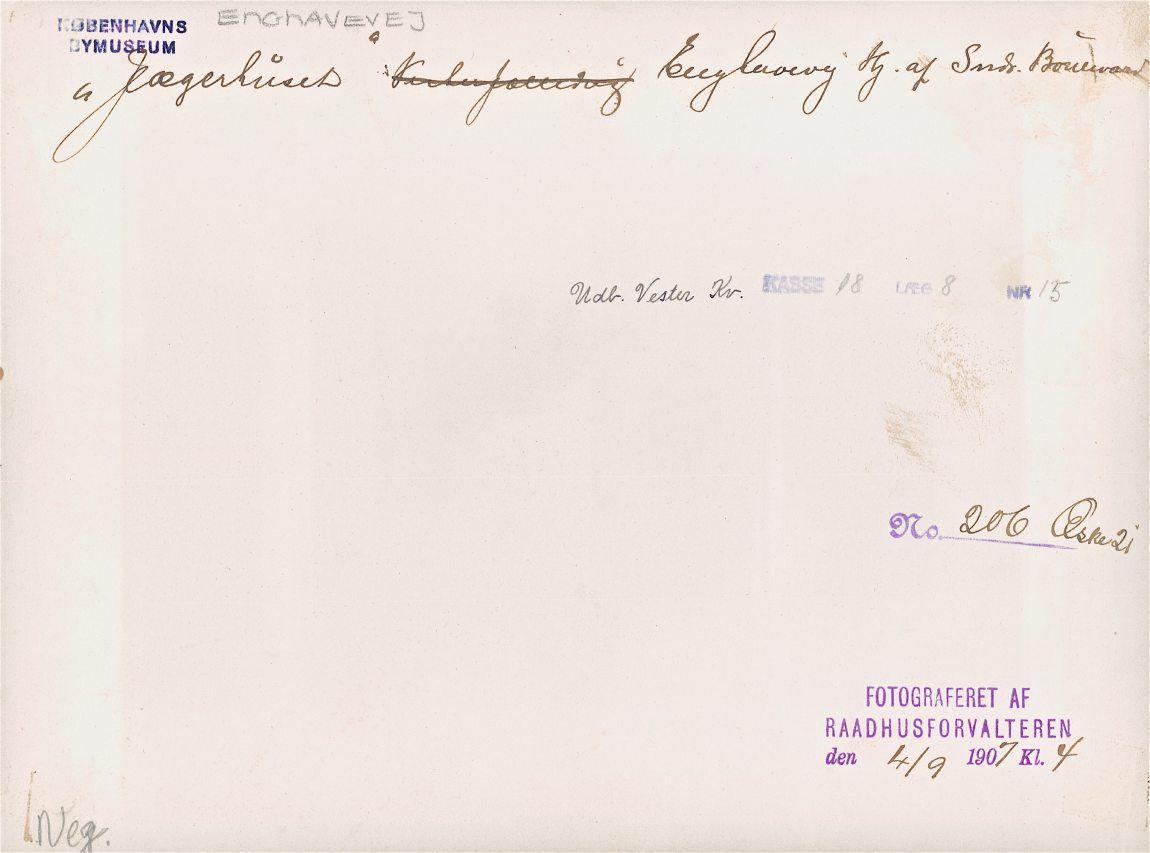 KØBENHAVNS
BYMUSEUM
ENGHAVEVEJ
"Jægerhuset" Enghavevej Hj. af Sndr. Boulevard
Udb. Vester Kv. KASSE 18 LÆG 8 NR 15
No. 206 Æske 21
FOTOGRAFERET AF
RAADHUSFORVALTEREN
den 4/9 1907 Kl. 4
Neg.